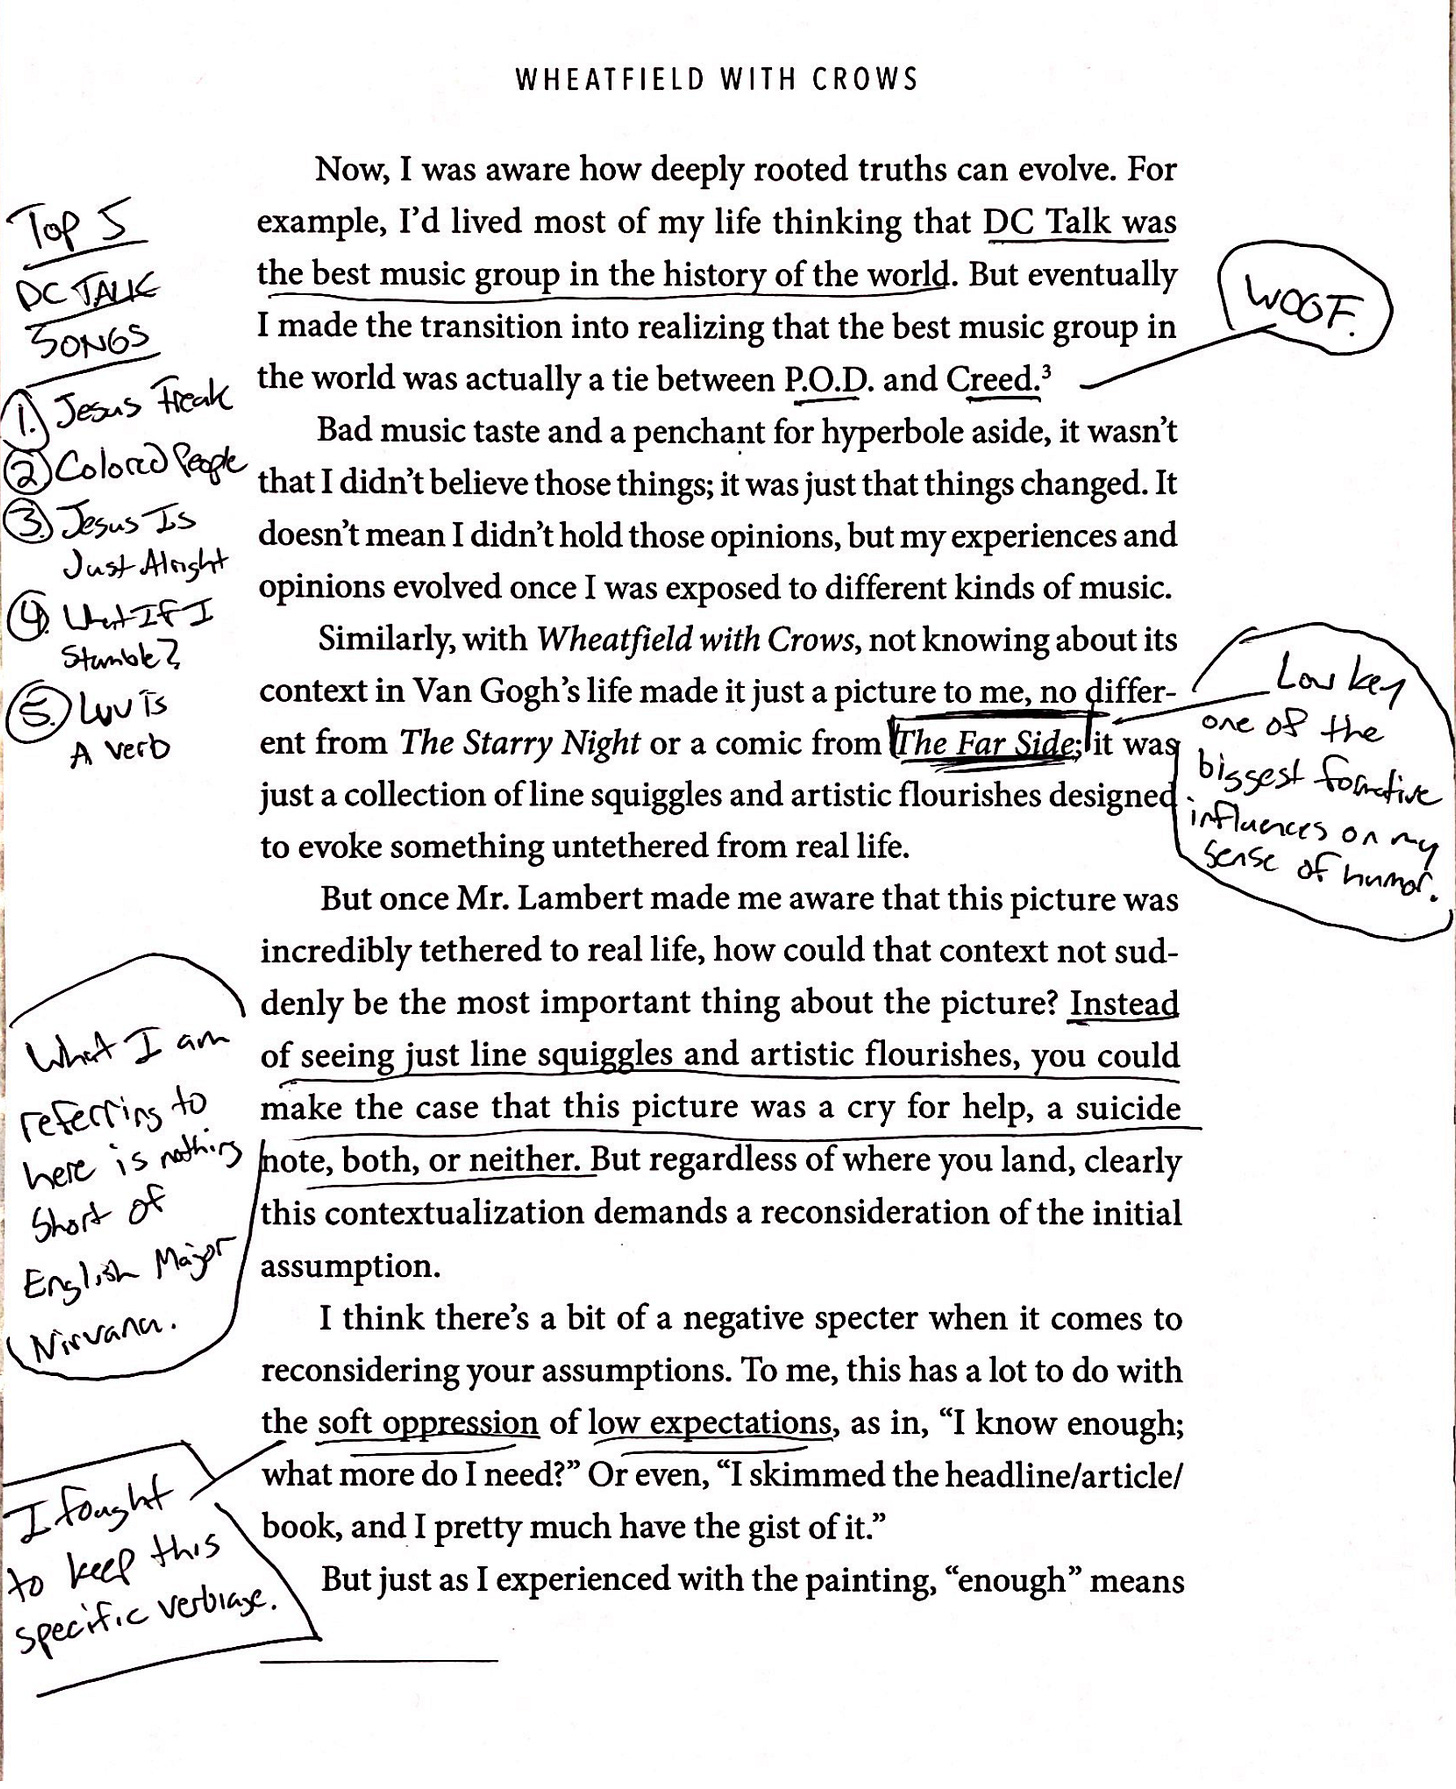 WHEATFIELD WITH CROWS
Now, I was aware how deeply rooted truths can evolve. For
example, I’d lived most of my life thinking that DC Talk was
the best music group in the history of the world. But eventually
I made the transition into realizing that the best music group in
the world was actually a tie between P.O.D. and Creed.³
Bad music taste and a penchant for hyperbole aside, it wasn’t
that I didn’t believe those things; it was just that things changed. It
doesn’t mean I didn’t hold those opinions, but my experiences and
opinions evolved once I was exposed to different kinds of music.
Similarly, with Wheatfield with Crows, not knowing about its
context in Van Gogh’s life made it just a picture to me, no differ-
ent from The Starry Night or a comic from The Far Side; it was
just a collection of line squiggles and artistic flourishes designed
to evoke something untethered from real life.
But once Mr. Lambert made me aware that this picture was
incredibly tethered to real life, how could that context not sud-
denly be the most important thing about the picture? Instead
of seeing just line squiggles and artistic flourishes, you could
make the case that this picture was a cry for help, a suicide
note, both, or neither. But regardless of where you land, clearly
this contextualization demands a reconsideration of the initial
assumption.
I think there’s a bit of a negative specter when it comes to
reconsidering your assumptions. To me, this has a lot to do with
the soft oppression of low expectations, as in, “I know enough;
what more do I need?” Or even, “I skimmed the headline/article/
book, and I pretty much have the gist of it.”
But just as I experienced with the painting, “enough” means
Top 5
DC TALK
SONGS
1. Jesus Freak
2 Colored People
3. Jesus Is
Just Alright
4. What If I
Stumble?
5. Luv is
A verb
WOOF.
Low key
one of the
biggest formative
influences on my
sense of humor.
What I am
referring to
here is nothing
short of
English Major
Nirvana.
I fought
to keep this
specific verbiage.